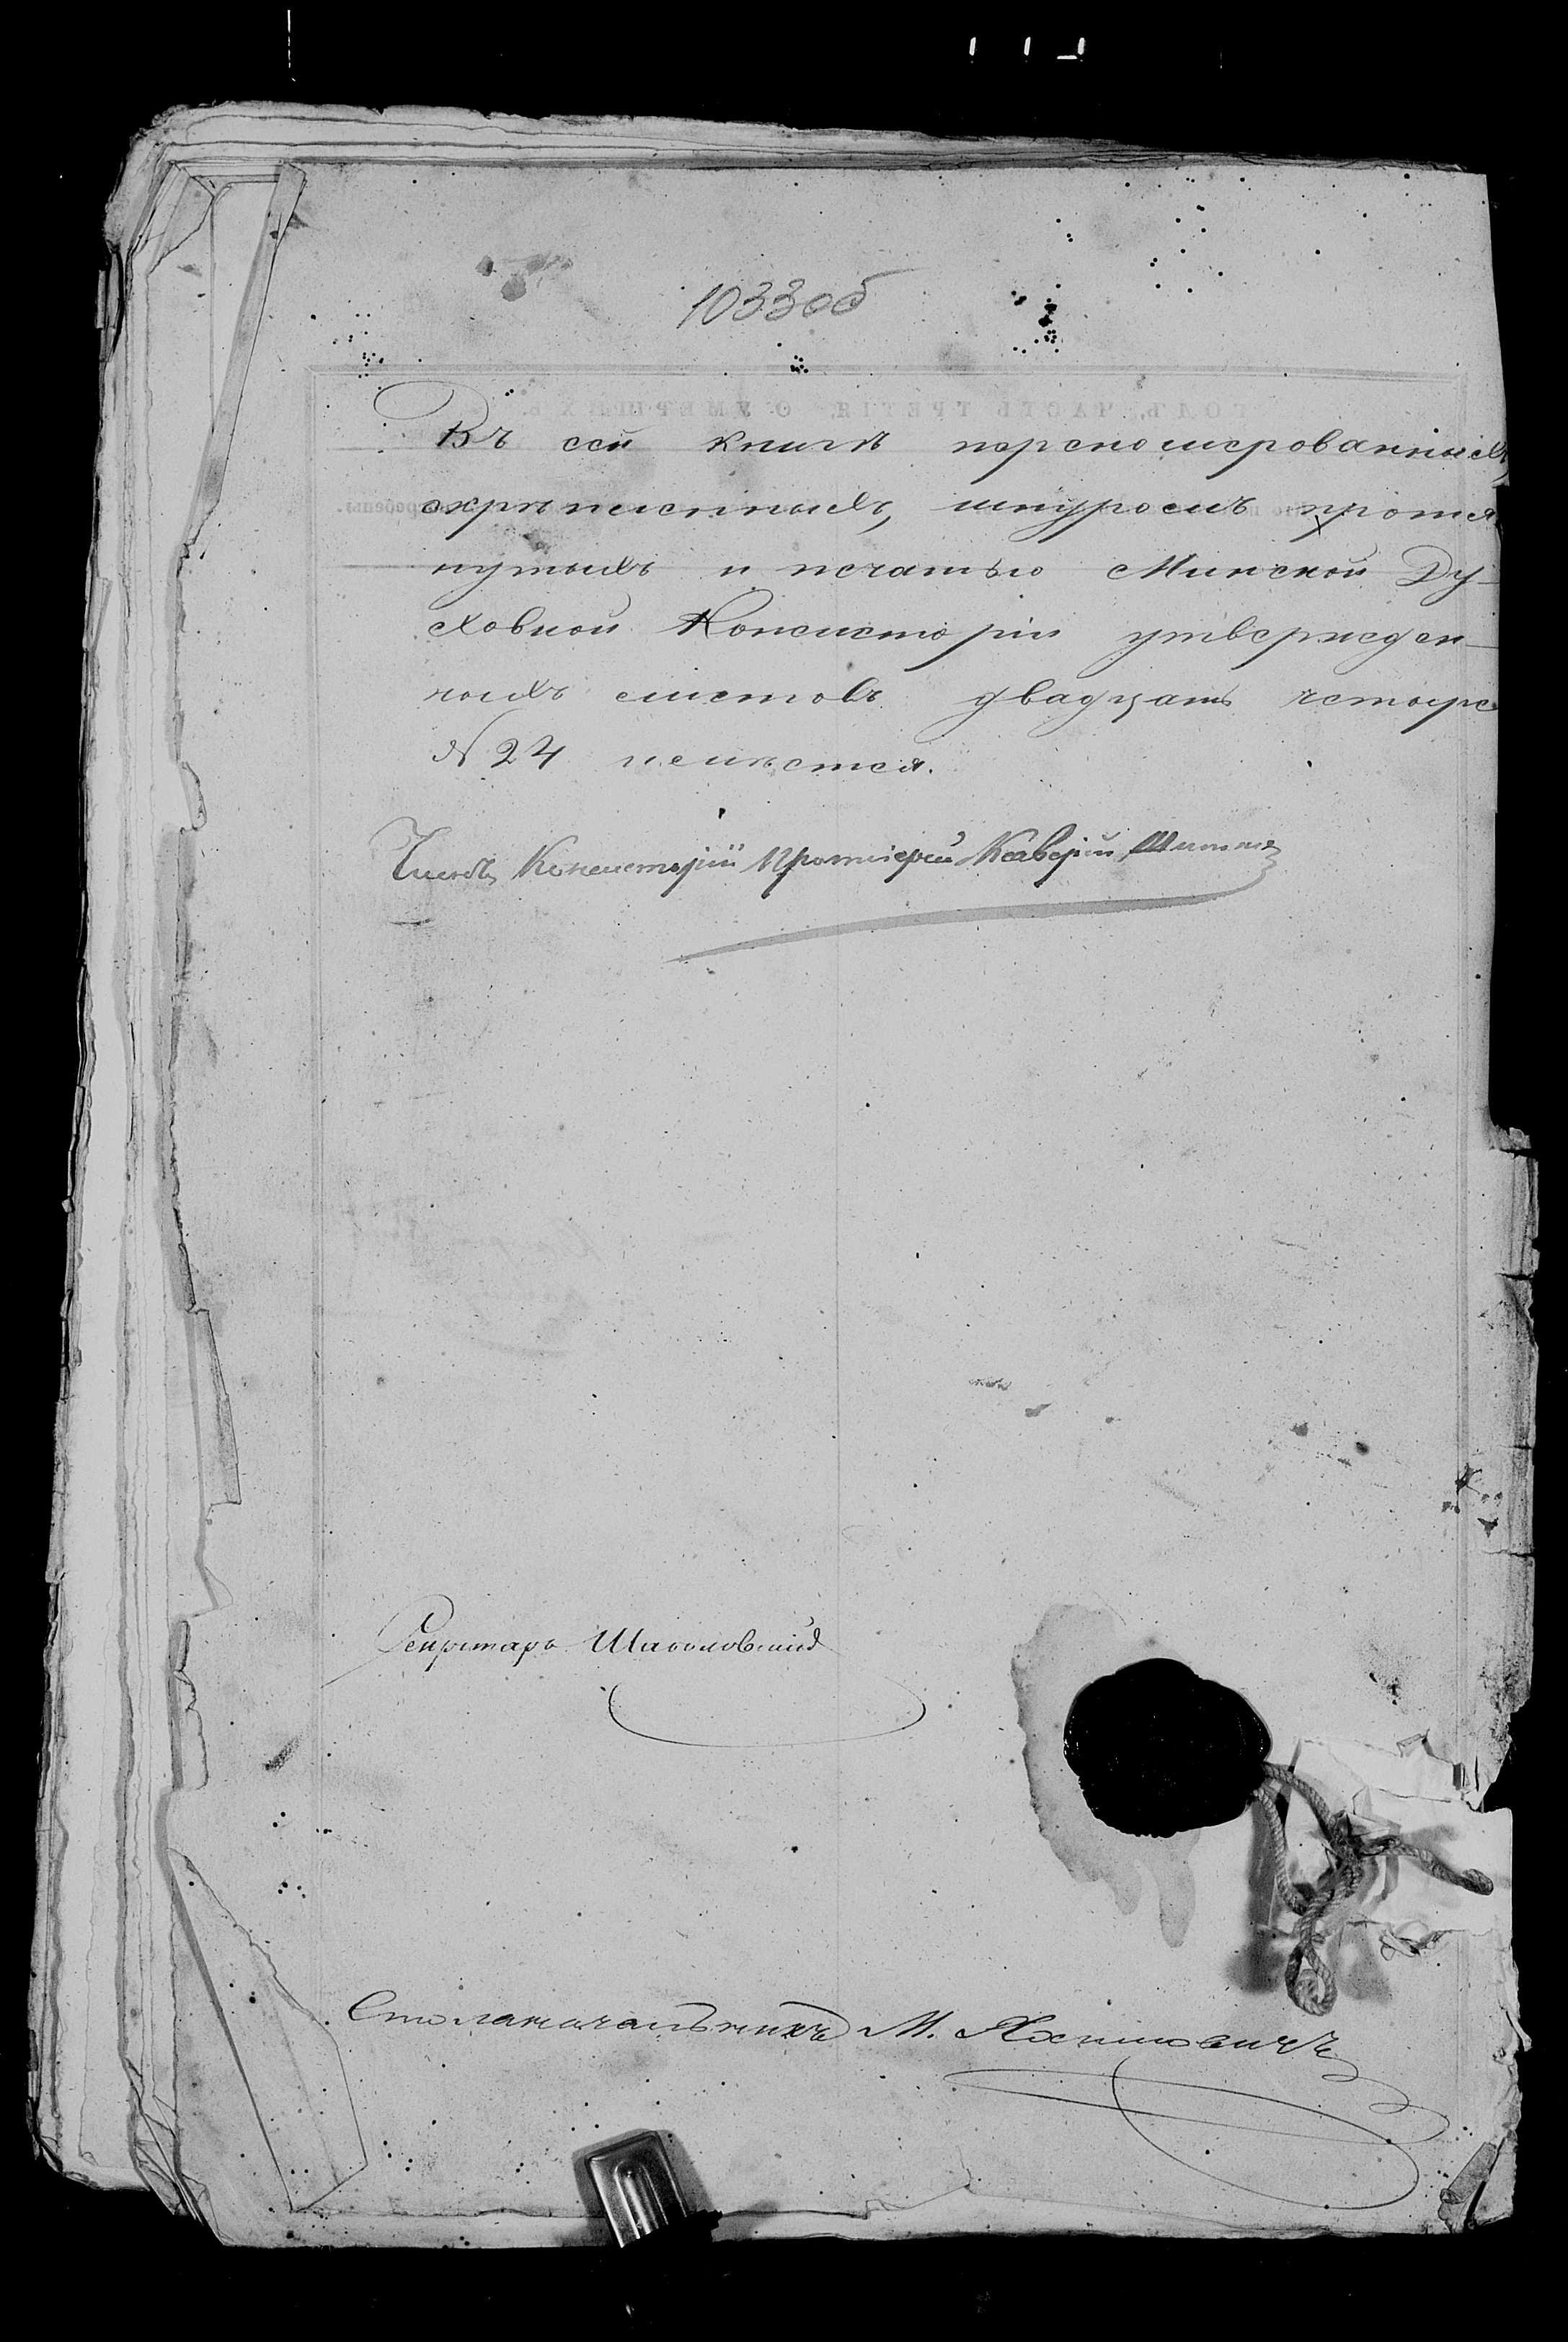 103305
Въ сей книгѣ перенумерованныхъ,
скрѣпленныхъ, шнуромъ протя
нутыхъ и печатью Минской Ду-
ховной Консисторіи утвержден-
ныхъ листовъ двадцать четыре
№ 24 имѣется.
Членъ Консисторіи Протоіерей
Секретарь
Столоначальникъ М.